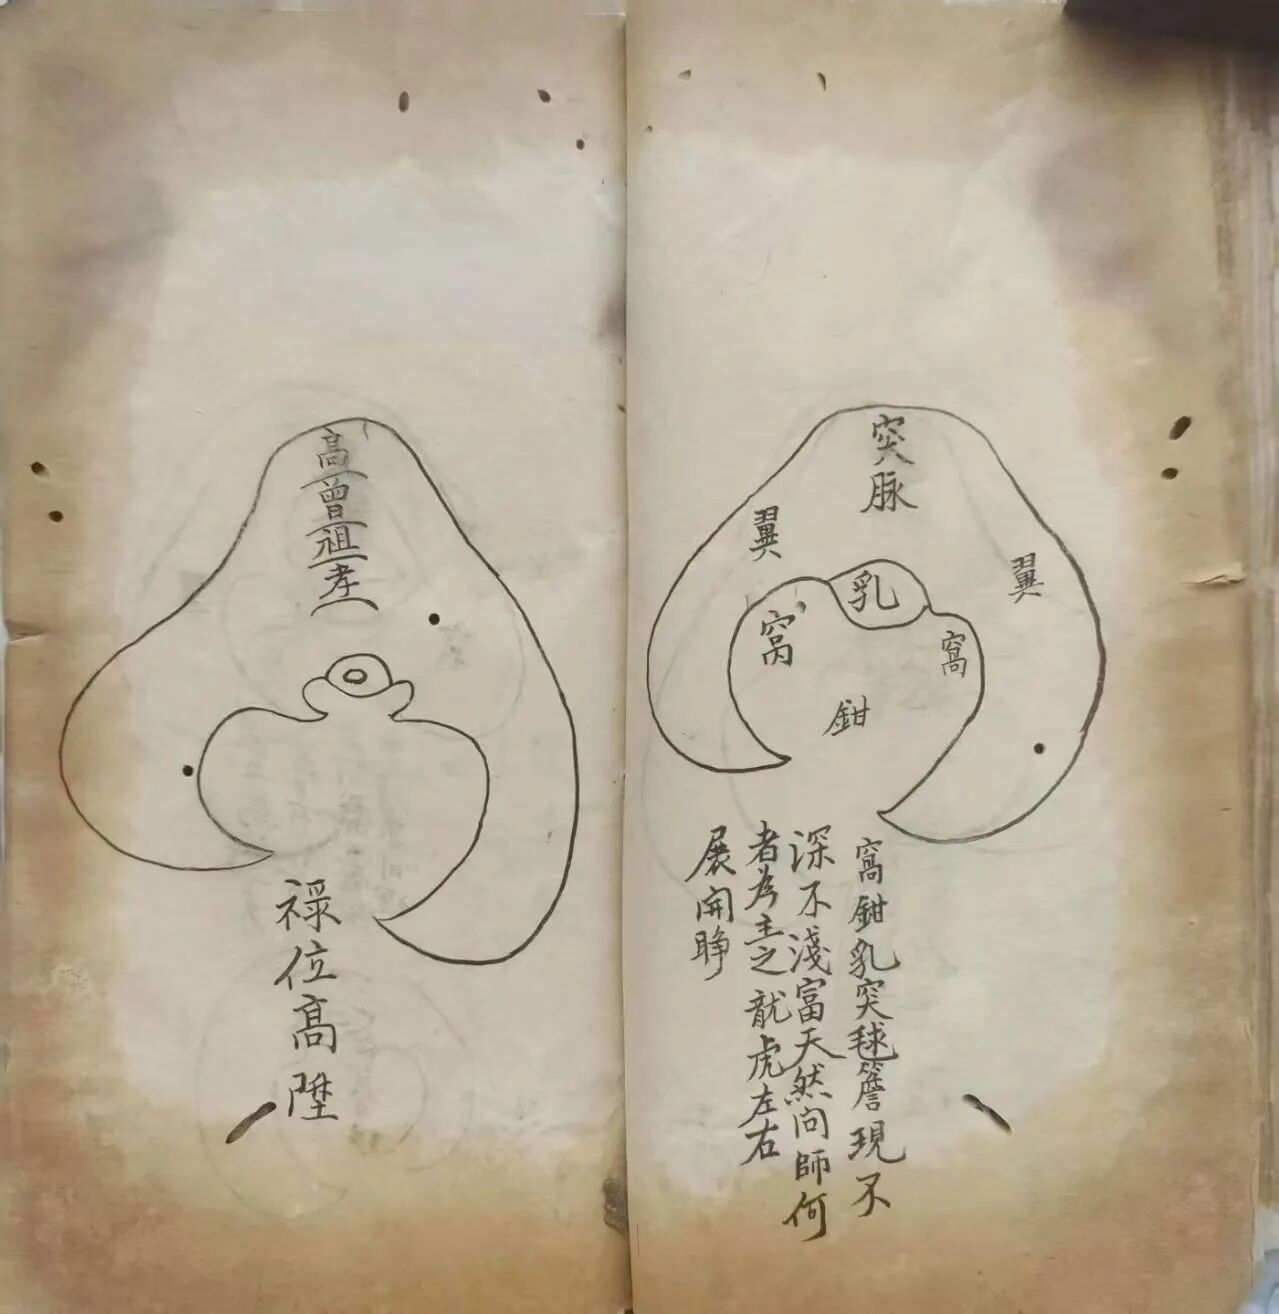 突脈
翼
翼
乳
窩
窩
鉗
窩鉗乳突毬簷現不
深不淺富天然问師何
者為主之龍虎左右
展開睁
高曾祖考
禄位高陞